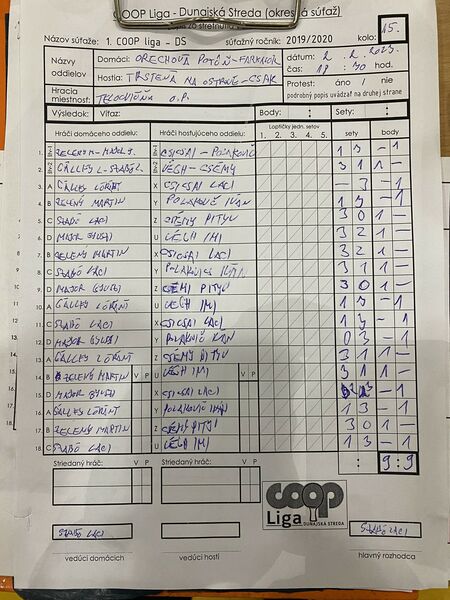 COOP Liga - Dunajská Streda (okresná súťaž)
Názov súťaže: 1. COOP liga - DS súťažný ročník: 2019/2020 kolo: 15.
Názvy oddielov
Domáci: ORECHOVÁ POTÔŇ-FARKAIOR
Hostia: TRSTENÁ NA OSTROVE-CSAK
dátum: 2. 2. 2023
čas: 18 . 30 hod.
Hracia miestnosť: TELOCVIČŇA O.P.
Protest: áno / nie
podrobný popis uvádzať na druhej strane
Výsledok: Víťaz: Body: : Sety: :
Hráči domáceho oddielu: Hráči hosťujúceho oddielu: Loptičky jedn. setov sety body
1. 2. 3. 4. 5.
1. 1 3 - 1
2. VÉGH - CSÉMY 3 1 1 -
3. A GÁLLFY LÓRÁNT X CSICSAI LACI - 3 - 1
4. B ZELENÝ MARTIN Y POLAKOVIČ IVÁN 1 3 - 1
5. C SZABÓ LACI Z CSÉMY PITYU 3 0 1 -
6. D MAJOR GYUSZI U VÉGH IMI 3 2 1 -
7. B ZELENÝ MARTIN X CSICSAI LACI 3 2 1 -
8. C SZABÓ LACI Y POLAKOVIČ IVÁN 3 1 1 -
9. D MAJOR GYUSZI Z CSÉMI PITYU 3 0 1 -
10. A GÁLLFY LÓRÁNT U VÉGH IMI 1 3 - 1
11. C SZABÓ LACI X CSICSAI LACI 1 3 - 1
12. D MAJOR GYUSZI Y POLAKOVIČ IVÁN 0 3 - 1
13. A GÁLLFY LÓRÁNT Z CSÉMY PITYU 3 1 1 -
14. B ZELENÝ MARTIN V P U VÉGH IMI V P 3 1 1 -
15. D MAJOR GYUSZI X CSICSAI LACI - 1
16. A GÁLLFY LÓRÁNT Y POLAKOVIČ IMI 1 3 - 1
17. B ZELENÝ MARTIN Z CSÉMY PITYU 3 0 1 -
18. C SZABÓ LACI U VÉGH IMI 1 3 - 1
Striedaný hráč: V P Striedaný hráč: V P : 9:9
coop
Liga DUNAJSKÁ STREDA
SZABÓ LACI SZABÓ LACI
vedúci domácich vedúci hostí hlavný rozhodca